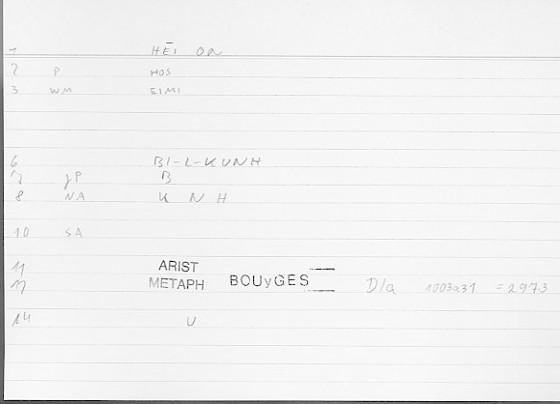 1 HĒI ON
2 P HOS
3 WM EIMI
6 BI-L-KUNH
7 gP B
8 NA K N H
10 SA
11 ARIST
12 METAPH BOUyGES D/a 1003a31 = 2973
14 U